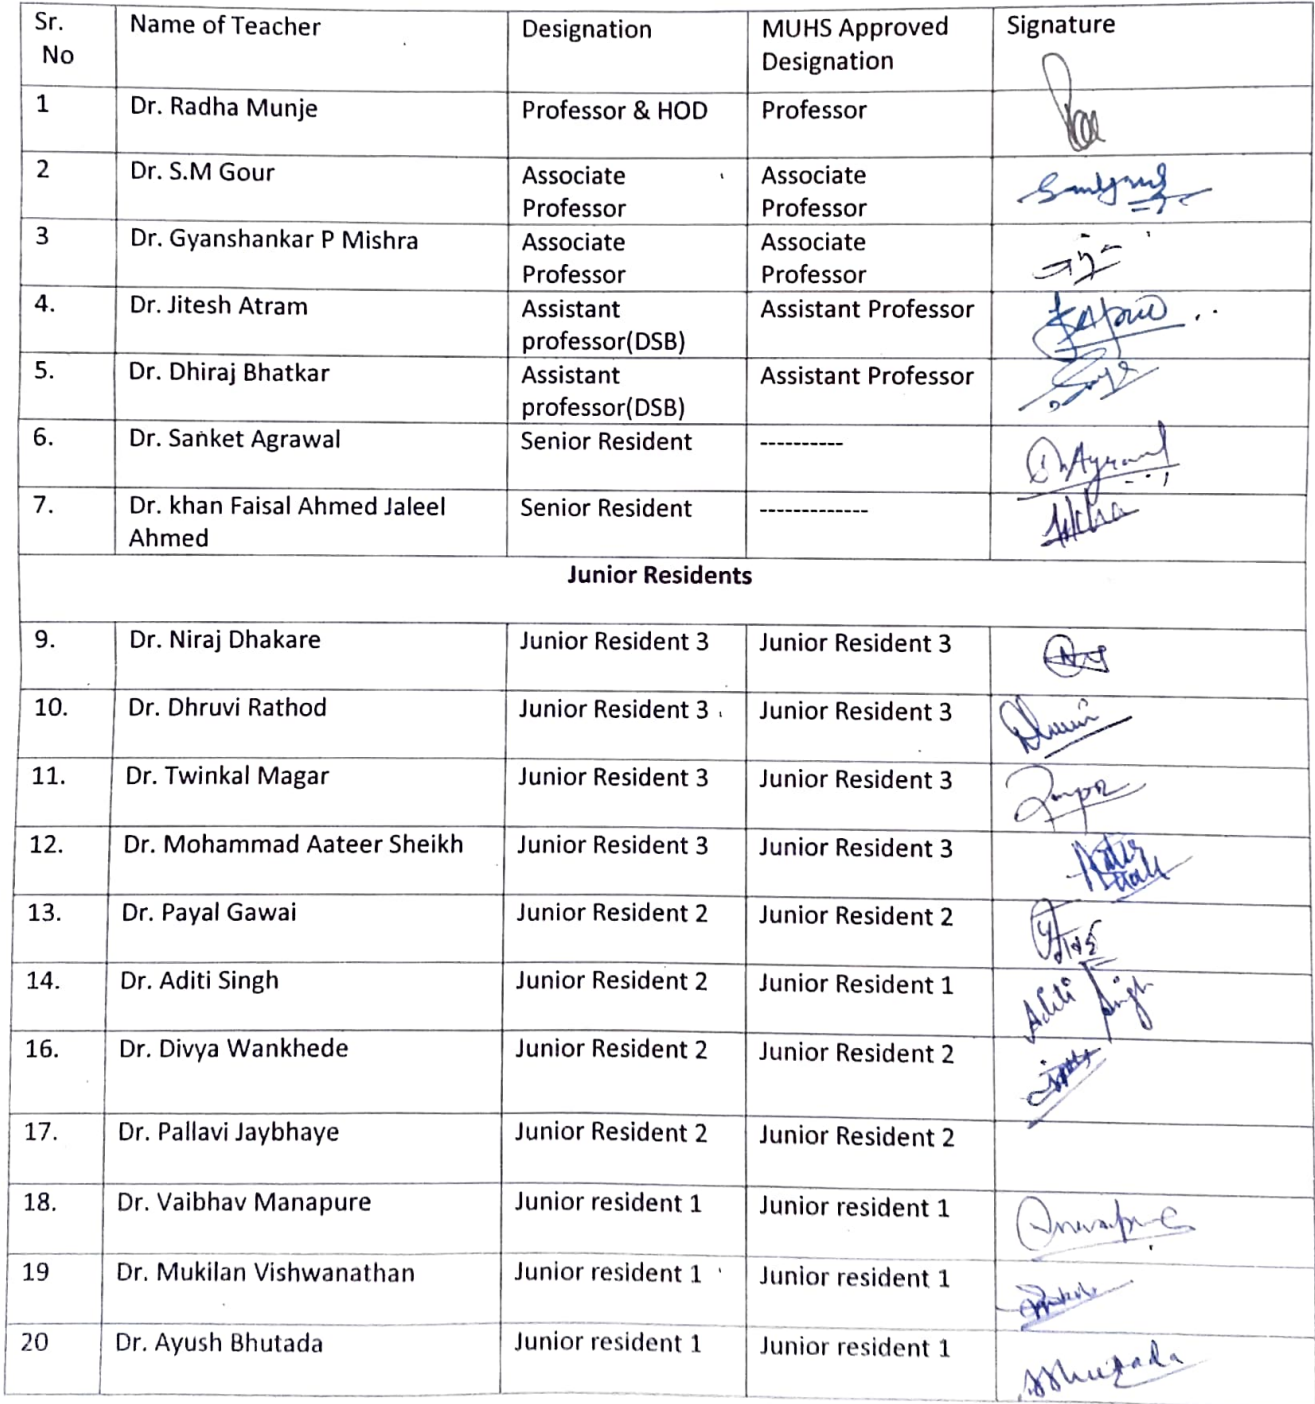 Sr. No Name of Teacher Designation MUHS Approved Designation Signature
1 Dr. Radha Munje Professor & HOD Professor
2 Dr. S.M Gour Associate Professor Associate Professor
3 Dr. Gyanshankar P Mishra Associate Professor Associate Professor
4. Dr. Jitesh Atram Assistant professor(DSB) Assistant Professor
5. Dr. Dhiraj Bhatkar Assistant professor(DSB) Assistant Professor
6. Dr. Sanket Agrawal Senior Resident ----------
7. Dr. khan Faisal Ahmed Jaleel Ahmed Senior Resident -------------
Junior Residents
9. Dr. Niraj Dhakare Junior Resident 3 Junior Resident 3
10. Dr. Dhruvi Rathod Junior Resident 3 Junior Resident 3
11. Dr. Twinkal Magar Junior Resident 3 Junior Resident 3
12. Dr. Mohammad Aateer Sheikh Junior Resident 3 Junior Resident 3
13. Dr. Payal Gawai Junior Resident 2 Junior Resident 2
14. Dr. Aditi Singh Junior Resident 2 Junior Resident 1 Aditi Singh
16. Dr. Divya Wankhede Junior Resident 2 Junior Resident 2
17. Dr. Pallavi Jaybhaye Junior Resident 2 Junior Resident 2
18. Dr. Vaibhav Manapure Junior resident 1 Junior resident 1
19 Dr. Mukilan Vishwanathan Junior resident 1 Junior resident 1
20 Dr. Ayush Bhutada Junior resident 1 Junior resident 1